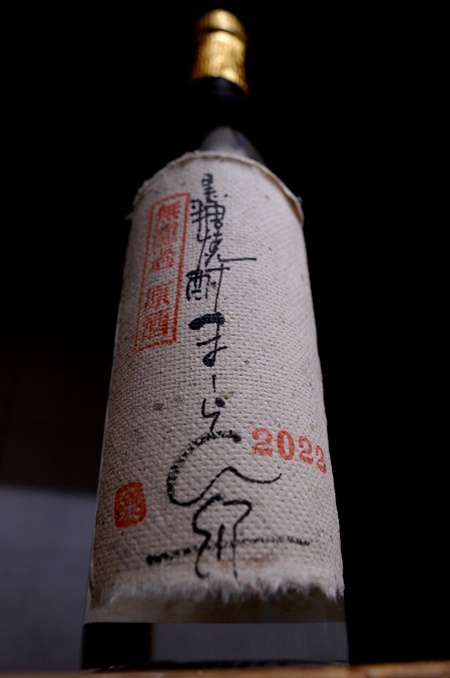 黒糖焼酎
まーらん舟
無濾過 原酒
2022